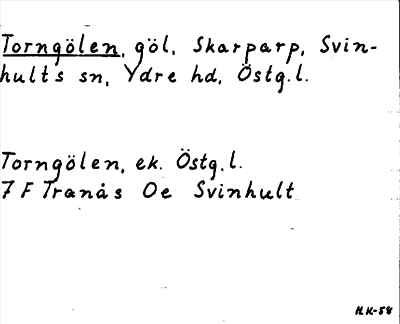 Torngölen, göl, Skarparp, Svin-
hults sn, Ydre hd, Östg.l.
Torngölen, ek. Östg.l.
7 F Tranås Oe Svinhult
H.K-58